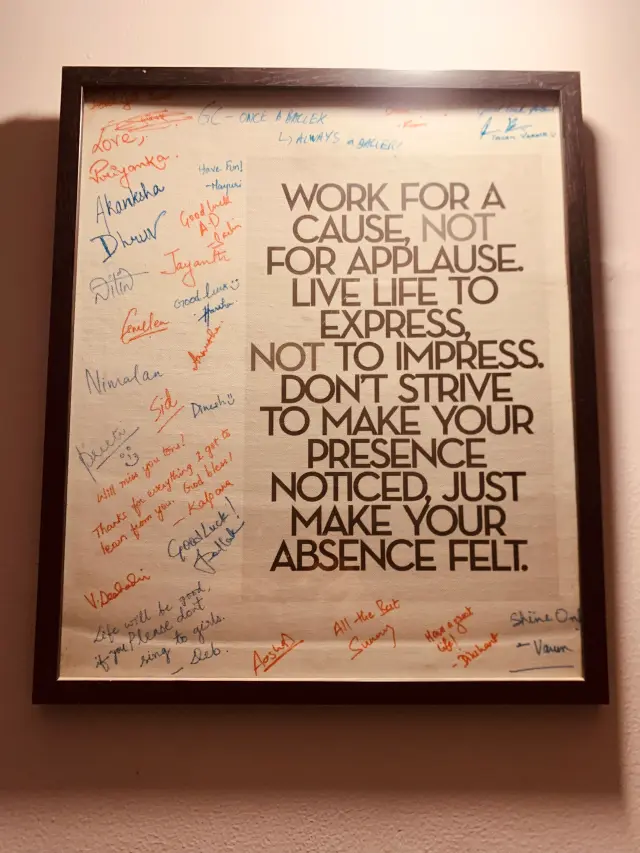 GC - ONCE A BALLER
↳ ALWAYS a BALLER!
Love,
Priyanka.
Have Fun!
Akanksha
Good luck
A.D
Dhruv
Jayanthi
Nitin
Good luck
Nimalan
Sid
Dinesh
Will miss you tons!
Thanks for everything I got to
learn from you. God bless!
- Kalpana
Good Luck!
Life will be good,
if you Please don't
sing to girls.
- Deb.
All the Best
Sunny
Have a great
life!
- Dikshant
Shine On!
- Varun
WORK FOR A
CAUSE, NOT
FOR APPLAUSE.
LIVE LIFE TO
EXPRESS,
NOT TO IMPRESS.
DON'T STRIVE
TO MAKE YOUR
PRESENCE
NOTICED, JUST
MAKE YOUR
ABSENCE FELT.